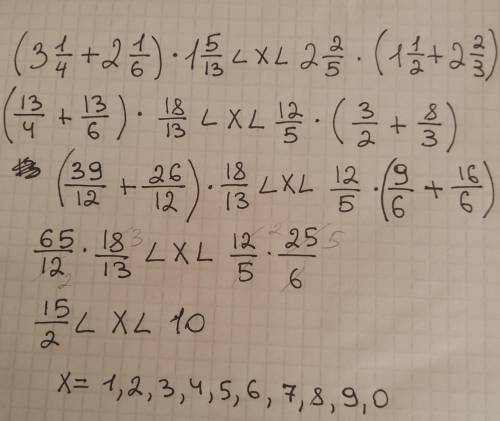 (3 1/4 + 2 1/6) · 1 5/13 < X < 2 2/5 · (1 1/2 + 2 2/3)
(13/4 + 13/6) · 18/13 < X < 12/5 · (3/2 + 8/3)
(39/12 + 26/12) · 18/13 < X < 12/5 · (9/6 + 16/6)
65/12 · 18/13 < X < 12/5 · 25/6
15/2 < X < 10
X = 1, 2, 3, 4, 5, 6, 7, 8, 9, 0